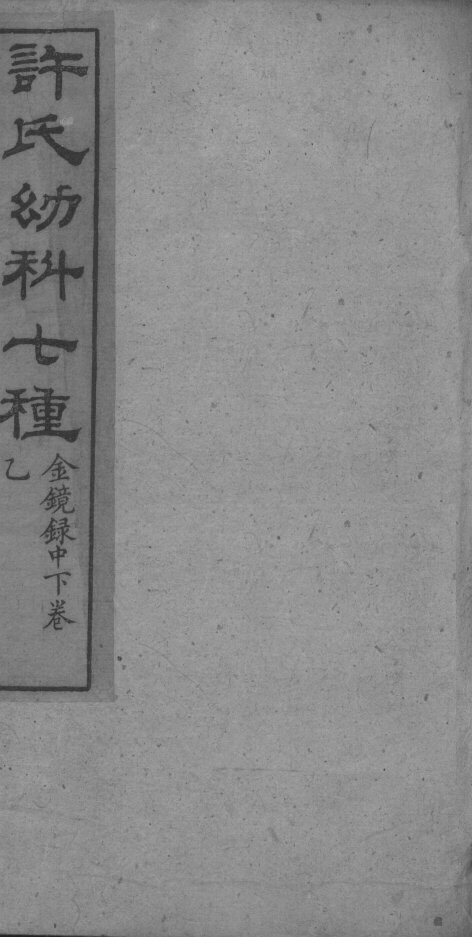 許氏幼科七種
金鏡録中下卷
乙